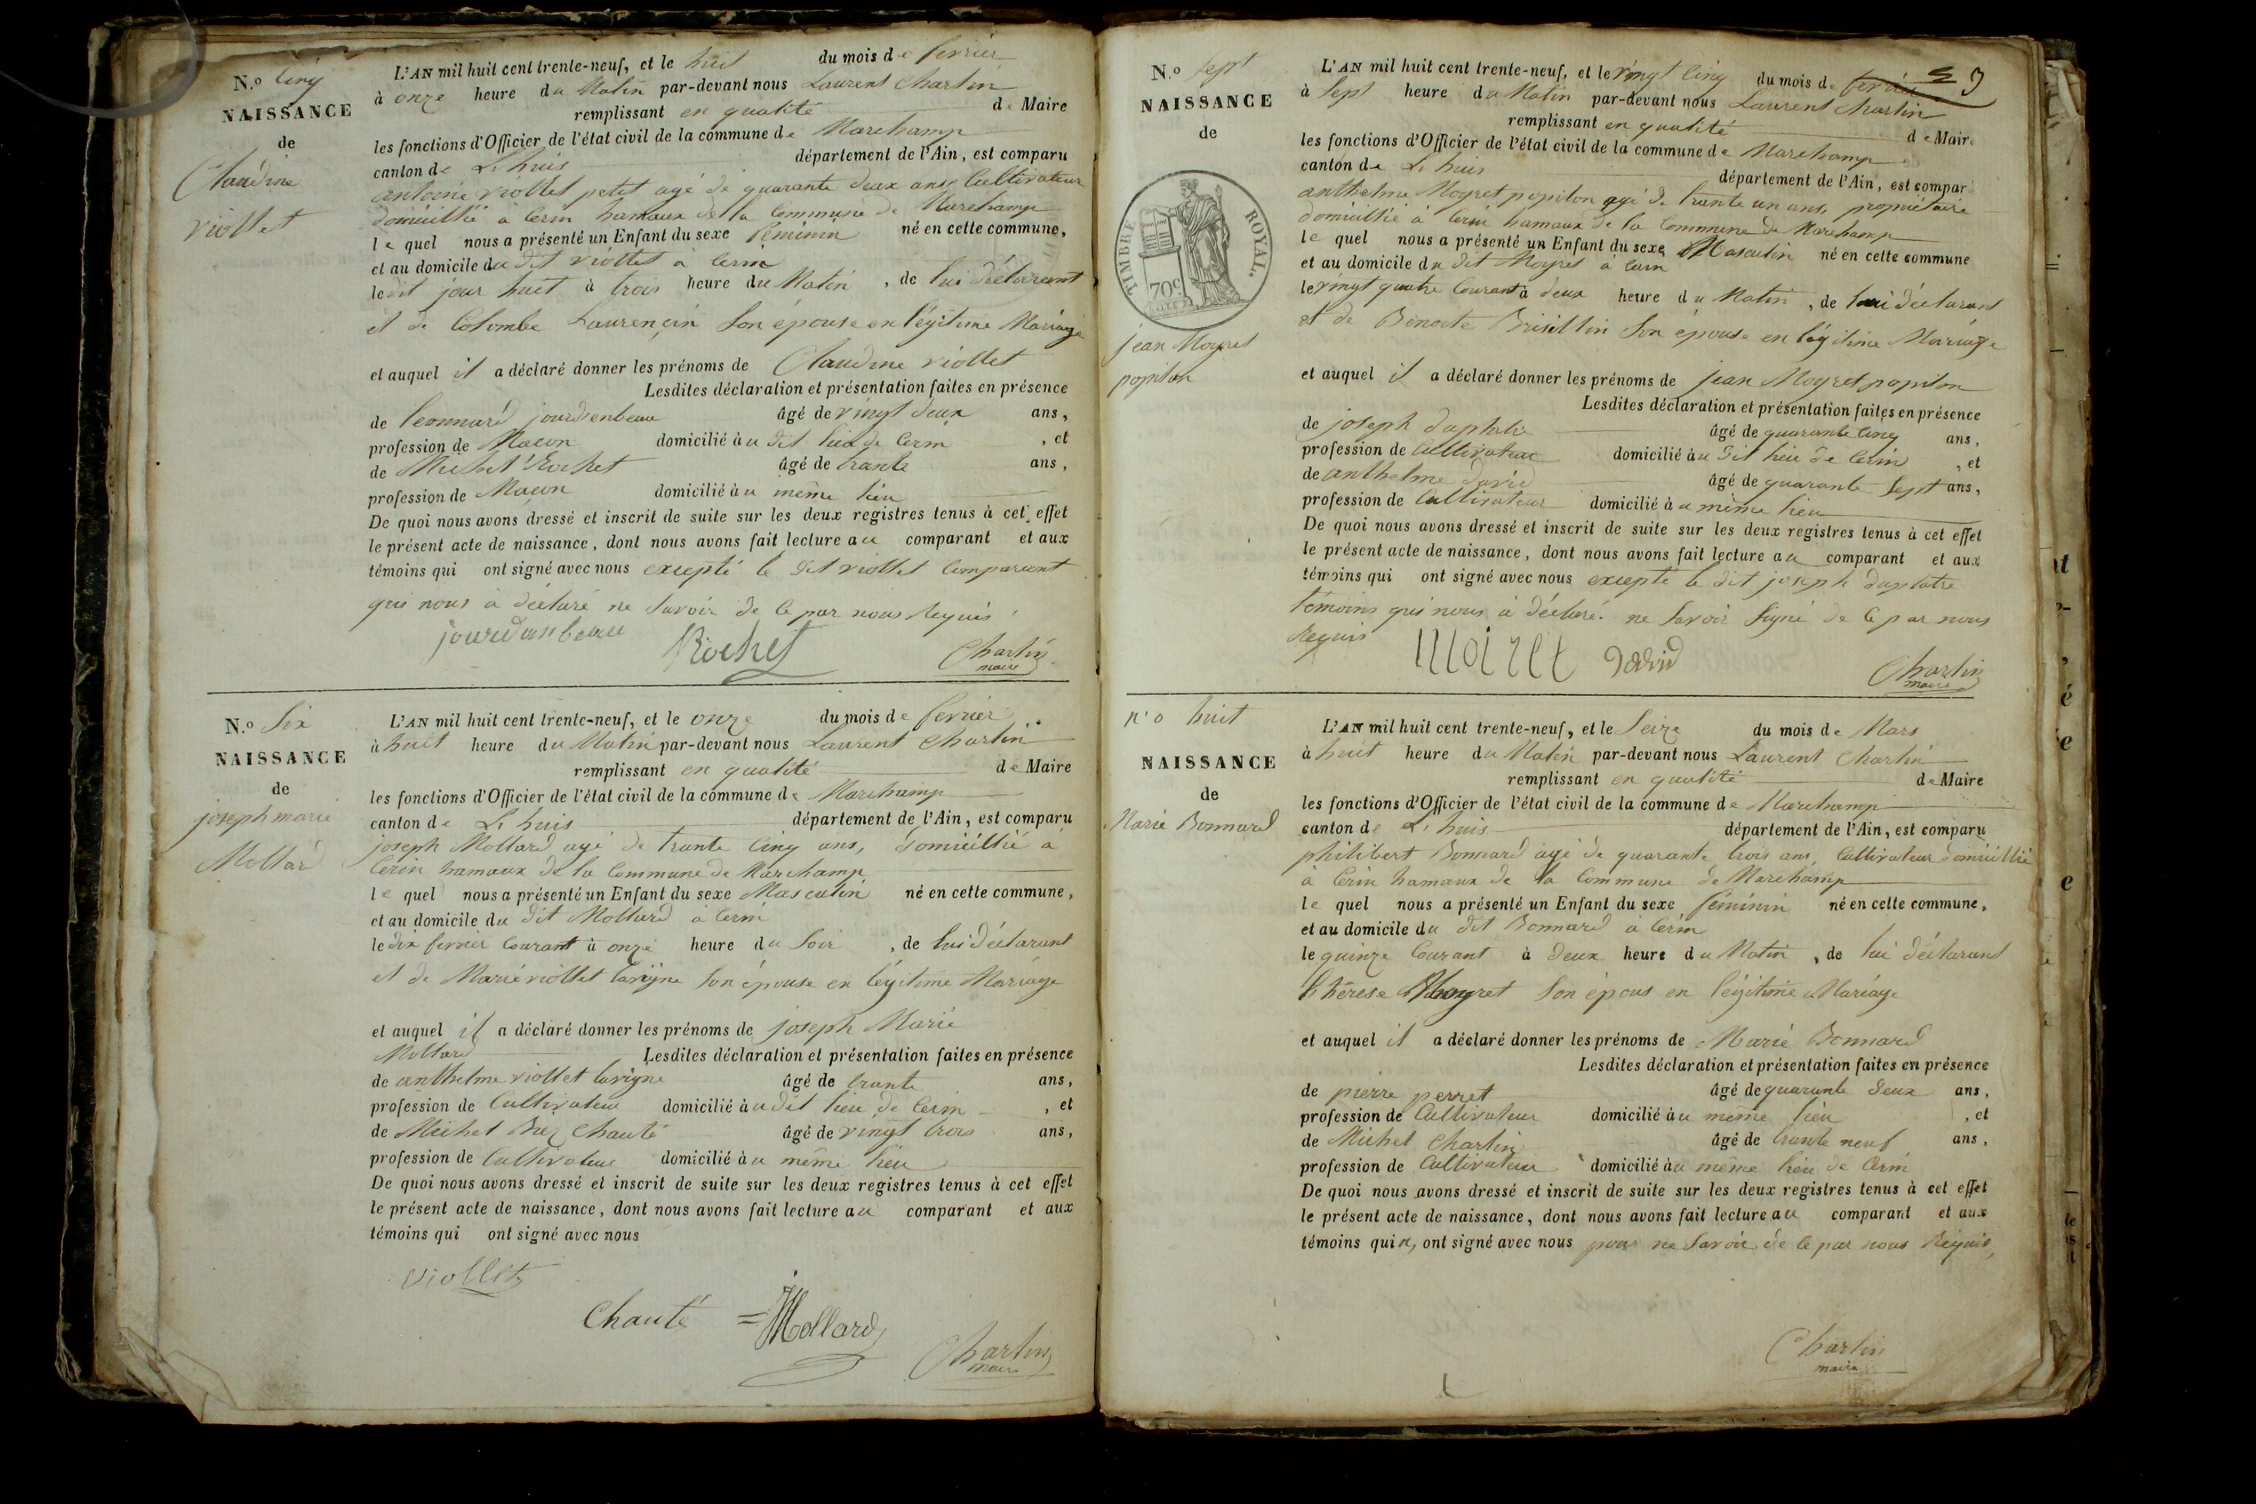 N.o Cinq
NAISSANCE
de
Claudine
viollet
L'AN mil huit cent trente-neuf, et le huit du mois de fevrier
à onze heure du Matin par-devant nous Laurent Chartin
remplissant en qualité de Maire
les fonctions d'Officier de l'état civil de la commune de Marchamp
canton de L'huis département de l'Ain, est comparu
antoine viollet petit agé de quarante deux ans, Cultivateur
domicillié à Cerin hamaux de la Commune de Marchamp
le quel nous a présenté un Enfant du sexe féminin né en cette commune,
et au domicile du dit viollet à Cerin
le dit jour huit à trois heure du Matin, de lui déclarant
et de Colombe Laurençin son épouse en légitime Mariage
et auquel il a déclaré donner les prénoms de Claudine viollet
Lesdites déclaration et présentation faites en présence
de leonnard jourdanbeau âgé de vingt deux ans,
profession de Maçon domicilié au dit lieu de Cerin, et
de Michel Rochet âgé de trante ans,
profession de Maçon domicilié au même lieu
De quoi nous avons dressé et inscrit de suite sur les deux registres tenus à cet effet
le présent acte de naissance, dont nous avons fait lecture au comparant et aux
témoins qui ont signé avec nous excepté le dit viollet Comparant
qui nous à déclaré ne savoir de Ce par nous Requis
jourdanbeau Rochet Chartin
maire
N.o Six
NAISSANCE
de
joseph marie
Mollard
L'AN mil huit cent trente-neuf, et le onze du mois de fevrier
à huit heure du Matin par-devant nous Laurent Chartin
remplissant en qualité de Maire
les fonctions d'Officier de l'état civil de la commune de Marchamp
canton de L'huis département de l'Ain, est comparu
joseph Mollard agé de trante Cinq ans, domicillié à
Cerin hamaux de la Commune de Marchamp
le quel nous a présenté un Enfant du sexe Masculin né en cette commune,
et au domicile du dit Mollard à Cerin
le dix fevrier Courant à onze heure du Soir, de lui déclarant
et de Marie viollet lavigne son épouse en légitime Mariage
et auquel il a déclaré donner les prénoms de joseph Marie
Mollard Lesdites déclaration et présentation faites en présence
de anthelme viollet lavigne âgé de trante ans,
profession de Cultivateur domicilié au dit lieu de Cerin, et
de Michel Chauté âgé de vingt trois ans,
profession de Cultivateur domicilié au même lieu
De quoi nous avons dressé et inscrit de suite sur les deux registres tenus à cet effet
le présent acte de naissance, dont nous avons fait lecture au comparant et aux
témoins qui ont signé avec nous
viollet
Chauté Mollard Chartin
maire
N.o sept
NAISSANCE
de
TIMBRE ROYAL.
jean Moyret
popilon
3
L'AN mil huit cent trente-neuf, et le vingt Cinq du mois de fevrier
à sept heure du Matin par-devant nous Laurent Chartin
remplissant en qualité de Maire
les fonctions d'Officier de l'état civil de la commune de Marchamp
canton de L'huis département de l'Ain, est compar
anthelme Moyret popilon agé de trante un ans, propriétaire
domicillié à Cerin hamaux de la Commune de Marchamp
le quel nous a présenté un Enfant du sexe Masculin né en cette commune
et au domicile du dit Moyret à Cerin
le vingt quatre Courant à deux heure du Matin, de lui déclarant
et de Benoite son épouse en légitime Mariage
et auquel il a déclaré donner les prénoms de jean Moyret popilon
Lesdites déclaration et présentation faites en présence
de joseph âgé de quarante Cinq ans,
profession de Cultivateur domicilié au dit lieu de Cerin, et
de anthelme david âgé de quarante sept ans,
profession de Cultivateur domicilié au même lieu
De quoi nous avons dressé et inscrit de suite sur les deux registres tenus à cet effet
le présent acte de naissance, dont nous avons fait lecture au comparant et aux
témoins qui ont signé avec nous excepté le dit joseph
témoins qui nous à déclaré ne savoir signé de Ce par nous
Requis Moiret David Chartin
maire
n.o huit
NAISSANCE
de
Marie Bonnard
L'AN mil huit cent trente-neuf, et le Seize du mois de Mars
à huit heure du Matin par-devant nous Laurent Chartin
remplissant en qualité de Maire
les fonctions d'Officier de l'état civil de la commune de Marchamp
canton de L'huis département de l'Ain, est comparu
philibert Bonnard agé de quarante trois ans, Cultivateur domicillié
à Cerin hamaux de la Commune de Marchamp
le quel nous a présenté un Enfant du sexe féminin né en cette commune,
et au domicile du dit Bonnard à Cerin
le quinze Courant à deux heure du Matin, de lui déclarant
thérese Moyret son épous en légitime Mariage
et auquel il a déclaré donner les prénoms de Marie Bonnard
Lesdites déclaration et présentation faites en présence
de pierre perret âgé de quarante deux ans,
profession de Cultivateur domicilié au même lieu, et
de Michel Chartin âgé de trante neuf ans,
profession de Cultivateur domicilié au même lieu de Cerin
De quoi nous avons dressé et inscrit de suite sur les deux registres tenus à cet effet
le présent acte de naissance, dont nous avons fait lecture au comparant et aux
témoins qui n, ont signé avec nous pour ne savoir de Ce par nous Requis,
Chartin
maire